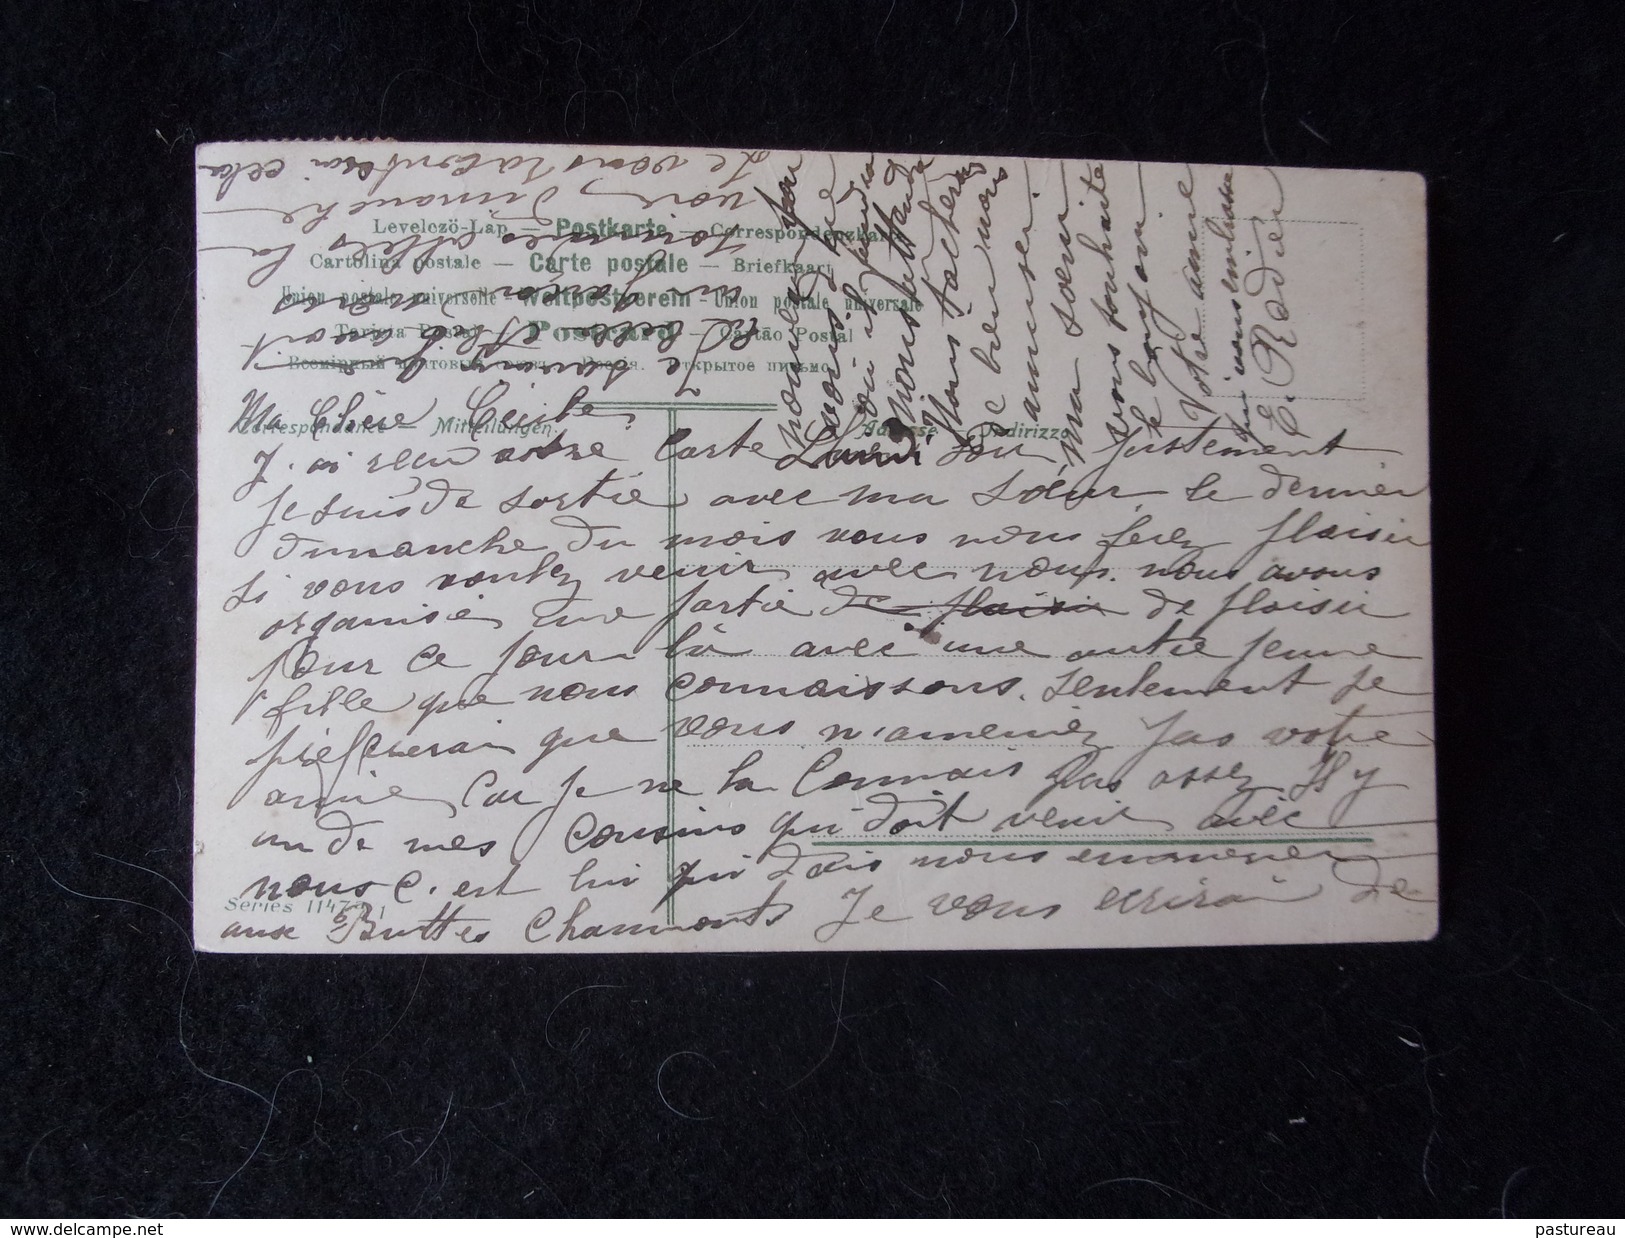 Levelezö-Lap — Postkarte — Correspondenzkarte
Cartolina postale — Carte postale — Briefkaart
Union postale universelle — Weltpostverein — Union postale universale
Post card — Cartão Postal
Всемірный почтовый союзъ. Россія. Открытое письмо
Correspondance — Mittheilungen.
Adresse — Indirizzo
Ma Chère Cécile
J'ai reçu votre Carte Lundi soir, Justement
Je suis de sortie avec ma sœur le dernier
dimanche du mois vous nous ferez plaisir
si vous voulez venir avec nous. nous avons
organisé une partie de plaisir de plaisir
pour ce jour là avec une autre jeune
fille que nous connaissons. seulement je
préfererai que vous n'ameniez pas votre
amie Car je ne la Connais pas assez. Il y
un de mes Cousins qui doit venir avec
nous C'est lui qui dois nous emmener
aux Buttes Chaumonts Je vous ecrirai de
Series 1147
voir Dimanche
Je vous raconterai cela
vous
nous attendre
Nous tacherons
de bien nous
amuser.
Ma sœur
vous souhaite
le bonjour
Votre amie
qui vous embrasse
C. Rodier
www.delcampe.net
pastureau